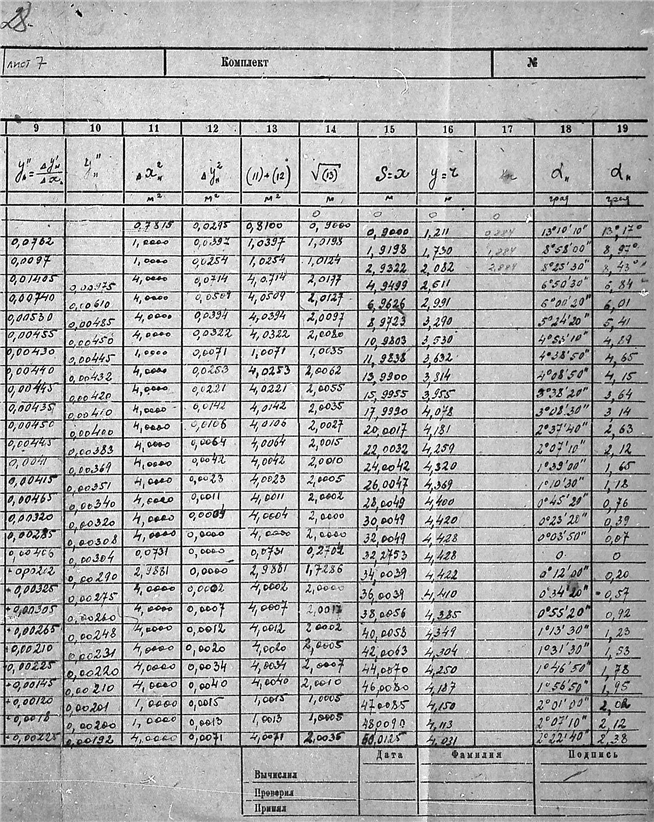 лист 7 Комплект №
9 10 11 12 13 14 15 16 17 18 19
Δx²ₙ Δy²ₙ (11)+(12) √(13) S=x y=r αₙ αₙ
м² м² м² м м м град град
0,7815 0,0295 0,8100 0,9000 0,9000 1,211 13°10'10" 13°17°
0,0762 1,0000 0,0397 1,0397 1,0198 1,9198 1,730 8°58'00" 8,97°
0,0097 1,0000 0,0254 1,0254 1,0124 2,9322 2,082 8°25'30" 8,43°
0,01405 0,00975 4,0000 0,0714 4,0714 2,0177 4,9499 2,611 6°50'30" 6,84
0,00740 0,00610 4,0000 0,0509 4,0509 2,0127 6,9626 2,991 6°00'20" 6,01
0,00530 0,00485 4,0000 0,0394 4,0394 2,0097 8,9723 3,290 5°24'20" 5,41
0,00455 0,00450 4,0000 0,0322 4,0322 2,0080 10,9803 3,530 4,89
0,00430 0,00445 1,0000 0,0071 1,0071 1,0035 11,9838 3,632 4°38'50" 4,65
0,00440 0,00432 4,0000 0,0253 4,0253 2,0062 13,9900 3,814 4°08'50" 4,15
0,00445 0,00420 4,0000 0,0221 4,0221 2,0055 15,9955 3,955 3°38'20" 3,64
0,00435 0,00410 4,0000 0,0142 4,0142 2,0035 17,9990 4,078 3°08'30" 3,14
0,00450 0,00400 4,0000 0,0106 4,0106 2,0027 20,0017 4,181 2°37'40" 2,63
0,00445 0,00383 4,0000 0,0064 4,0064 2,0015 22,0032 4,259 2°07'10" 2,12
0,0041 0,00369 4,0000 0,0042 4,0042 2,0010 24,0042 4,320 1°39'00" 1,65
0,00415 0,00351 4,0000 0,0023 4,0023 2,0005 26,0047 4,369 1°10'30" 1,18
0,00465 0,00340 4,0000 0,0011 4,0011 2,0002 28,0049 4,400 0°45'20" 0,76
0,00320 0,00320 4,0000 0,0004 4,0004 2,0000 30,0049 4,420 0°23'20" 0,39
0,00285 0,00308 4,0000 0,0000 4,0000 2,0000 32,0049 4,428 0°03'50" 0,07
0,00406 0,00304 0,0731 0,0000 0,0731 0,2702 32,2753 4,428 0 0
+0,00212 0,00290 2,9881 0,0000 2,9881 1,7286 34,0039 4,422 0°12'00" 0,20
+0,00325 0,00275 4,0000 0,0002 4,0002 2,0000 36,0039 4,410 0°34'20" 0,57
+0,00305 0,00260 4,0000 0,0007 4,0007 2,0017 38,0056 4,385 0°55'20" 0,92
+0,00265 0,00248 4,0000 0,0012 4,0012 2,0002 40,0058 4,349 1°13'30" 1,23
+0,00210 0,00231 4,0000 0,0020 4,0020 2,0005 42,0063 4,304 1°31'30" 1,53
+0,00225 0,00220 4,0000 0,0034 4,0034 2,0007 44,0070 4,250 1°46'50" 1,78
+0,00145 0,00210 4,0000 0,0040 4,0040 2,0010 46,0080 4,187 1°56'50" 1,95
+0,00120 0,00201 1,0000 0,0015 1,0015 1,0005 47,0085 4,150 2°01'00" 2,02
+0,0018 0,00200 1,0000 0,0013 1,0013 1,0005 48,0090 4,113 2°07'10" 2,12
+0,00225 0,00192 4,0000 0,0071 4,0071 2,0035 50,0125 4,031 2°22'40" 2,38
Дата Фамилия Подпись
Вычислил
Проверил
Принял